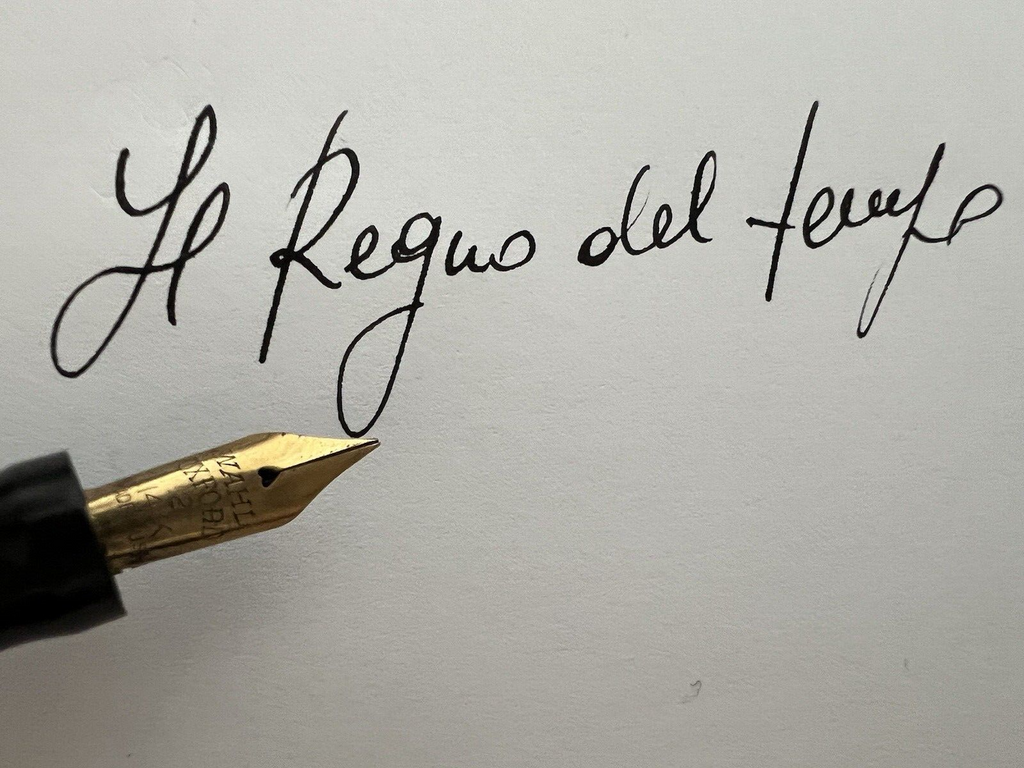 Il Regno del tempo
WAHL
OXFORD
2
14 K